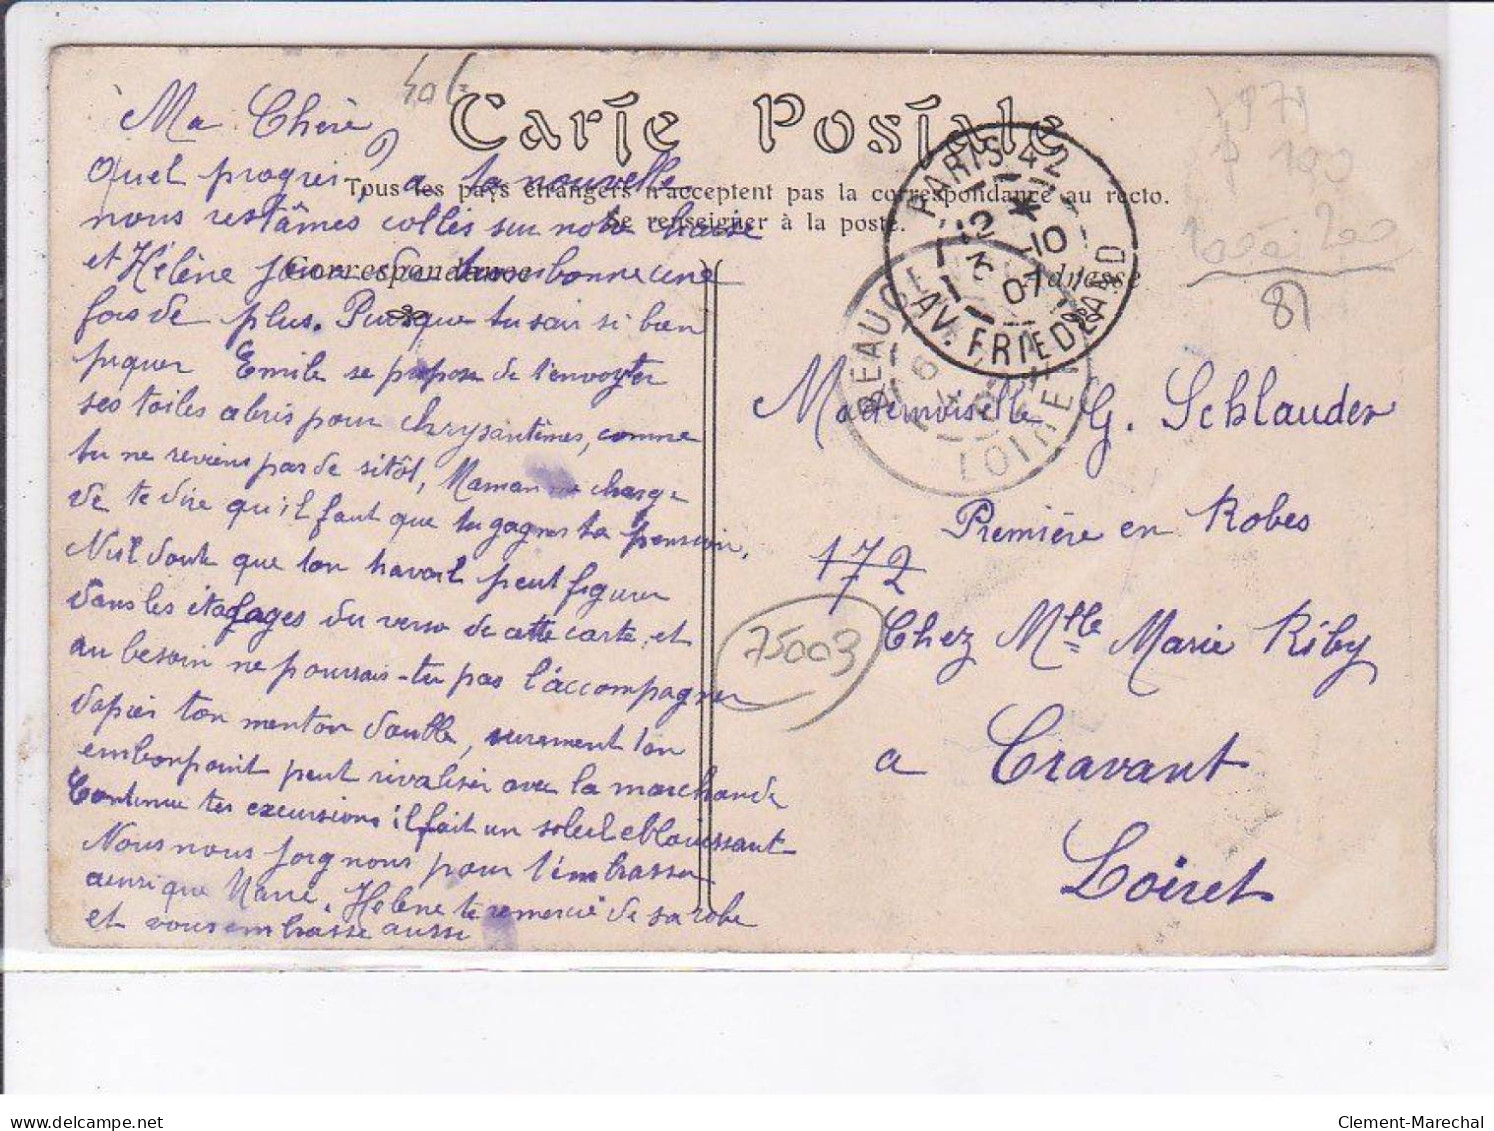 Carte Postale
Tous les pays étrangers n'acceptent pas la correspondance au recto.
Se renseigner à la poste.
Correspondance
Adresse
Ma Chère,
Quel progrès, a la nouvelle
nous restâmes collés sur notre chaise
et Hélène joua du trombonne une
fois de plus. Puisque tu sais si bien
piquer Emile se propose de t'envoyer
ses toiles abris pour chrysantèmes, comme
tu ne reviens pas de sitôt, Maman me charge
de te dire qu'il faut que tu gagnes ta pension.
Nul doute que ton travail peut figurer
dans les étalages du verso de cette carte, et
au besoin ne pourrais-tu pas l'accompagner
d'après ton menton double, surement ton
embonpoint peut rivaliser avec la marchande
Continue tes excursions il fait un soleil eblouissant
Nous nous joignons pour t'embrasser
ainsi que Marie. Hélène te remercie de sa robe
et vous embrasse aussi
Mademoiselle G. Schlauder
Première en Robes
Chez Mlle Marie Riby
a Cravant
Loiret
172
75003
PARIS 42
12 * 
3 -10
07
AV. FRIEDLAND
BEAUGENCY
LOIRET
p 100
81
Clement-Marechal